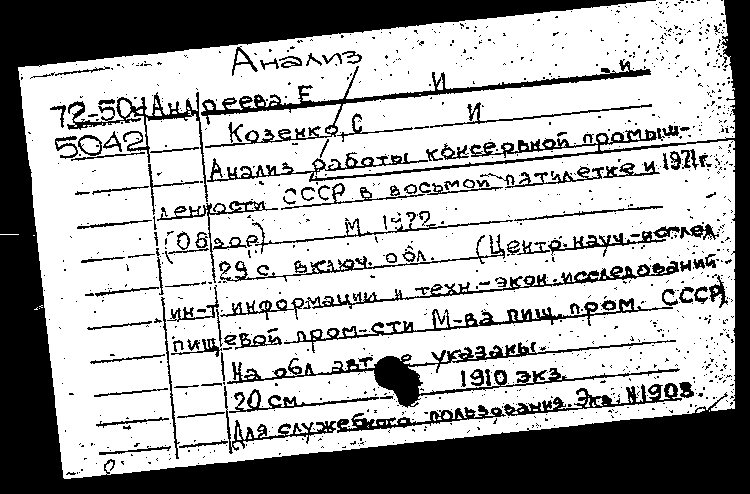 Анализ
72-504 Андреева, Е И - и
5042 Козенко, С И
Анализ работы консервной промыш-
ленности СССР в восьмой пятилетке и 1971г.
(Обзор). М. 1972.
29 с. включ. обл. (Центр. науч.-исслед
ин-т информации и техн.-экон. исследований
пищевой пром-сти М-ва пищ. пром. СССР)
На обл авт не указаны.
20 см. 1910 экз.
Для служебного пользования. Экз. N1903.